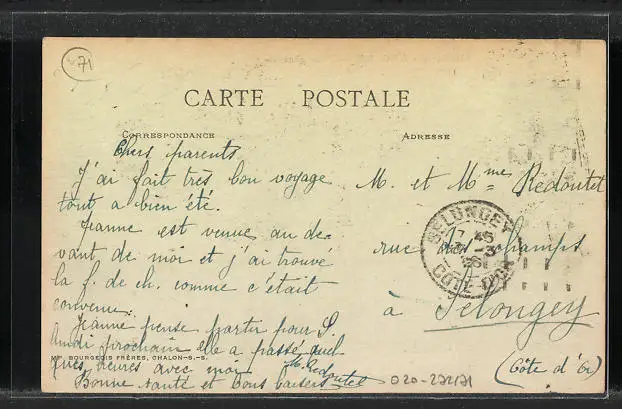 71
CARTE POSTALE
CORRESPONDANCE
ADRESSE
Chers parents
J'ai fait très bon voyage
tout a bien été.
Jeanne est venue au de-
vant de moi et j'ai trouvé
la f. de ch. comme c'était
convenu.
Jeanne pense partir pour S.
lundi prochain elle a passé quel
ques heures avec moi
Bonne santé et bons baisers
M. Redoutet
M. et Mme Redoutet
rue des champs
à Selongey
(Côte d'Or)
SELONGEY
CÔTE-D'OR
MON BOURGEOIS FRÈRES, CHALON-S-S.
020-272171